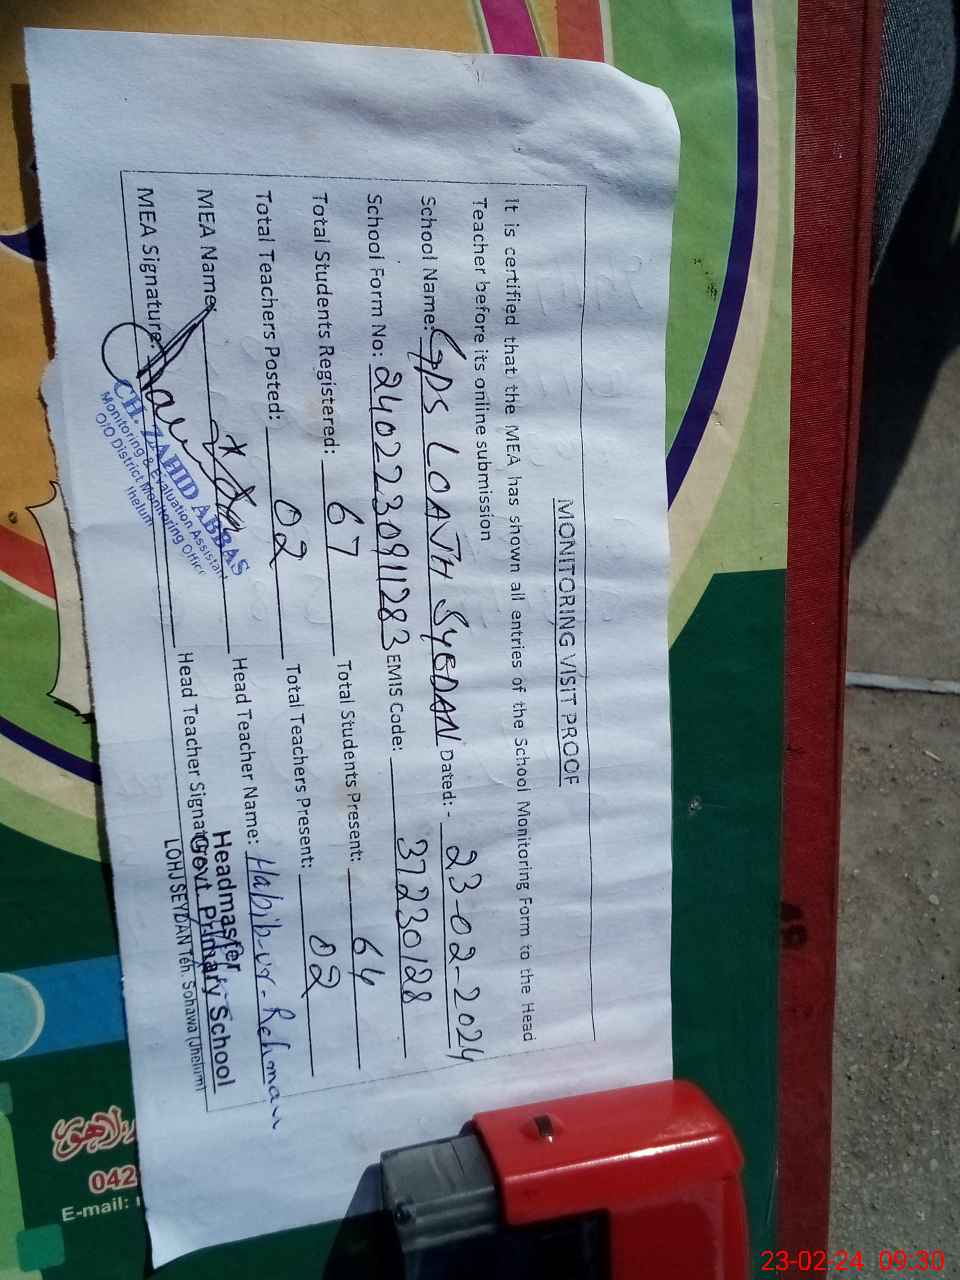 MONITORING VISIT PROOF
It is certified that the MEA has shown all entries of the School Monitoring Form to the Head
Teacher before its online submission
School Name: GPS LOAJH SYEDAN Dated:- 23-02-2024
School Form No: 2402230911283 EMIS Code: 37230128
Total Students Registered: 67 Total Students Present: 64
Total Teachers Posted: 02 Total Teachers Present: 02
MEA Name: Head Teacher Name: Habib-ur-Rehman
MEA Signature: Head Teacher Signat
CH. ZAHID ABBAS
Monitoring & Evaluation Assistant
O/O District Monitoring Officer
Jhelum
Headmaster
Govt. Primary School
LOHJ SEYDAN Teh. Sohawa (Jhelum)
لاہور
042
E-mail:
23-02-24 09:30